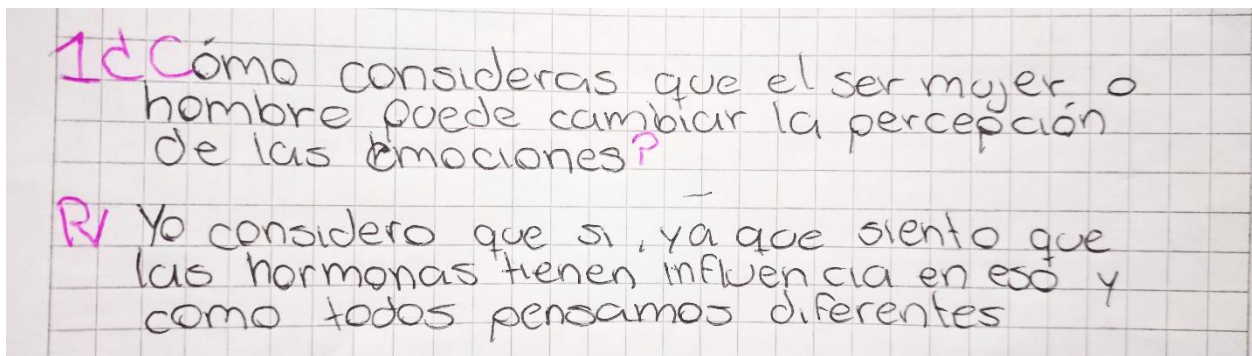 1¿Cómo consideras que el ser mujer o
hombre puede cambiar la percepción
de las emociones?
R/ Yo considero que si, ya que siento que
las hormonas tienen influencia en eso y
como todos pensamos diferentes